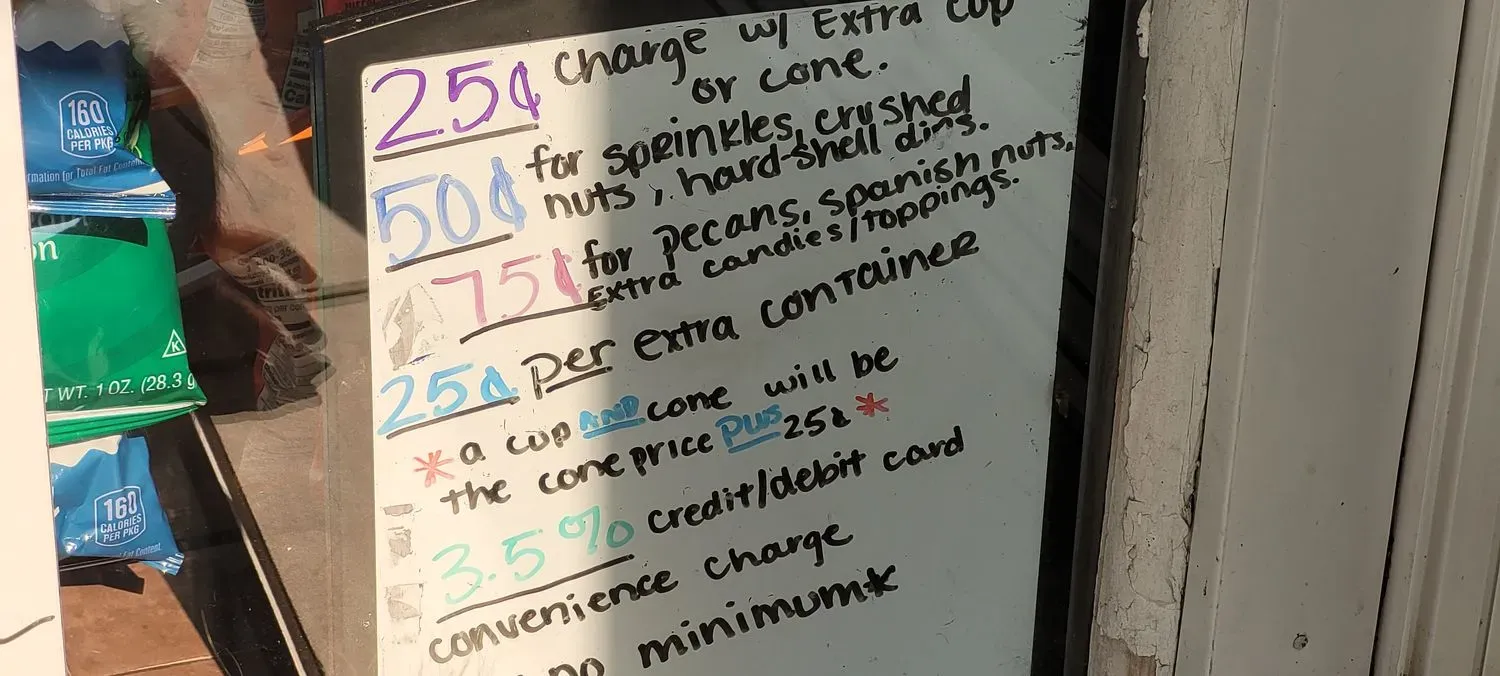 25¢ charge w/ Extra cup
or cone.
50¢ for sprinkles, crushed
nuts, hard-shell dips.
75¢ for pecans, spanish nuts,
Extra candies/toppings.
25¢ per extra container
* a cup AND cone will be
the cone price plus 25¢ *
3.5% credit/debit card
convenience charge
no minimum*
160
CALORIES
PER PKG
rmation for Total Fat Content
on
K
T WT. 1 OZ. (28.3 g
160
CALORIES
PER PKG
t Content